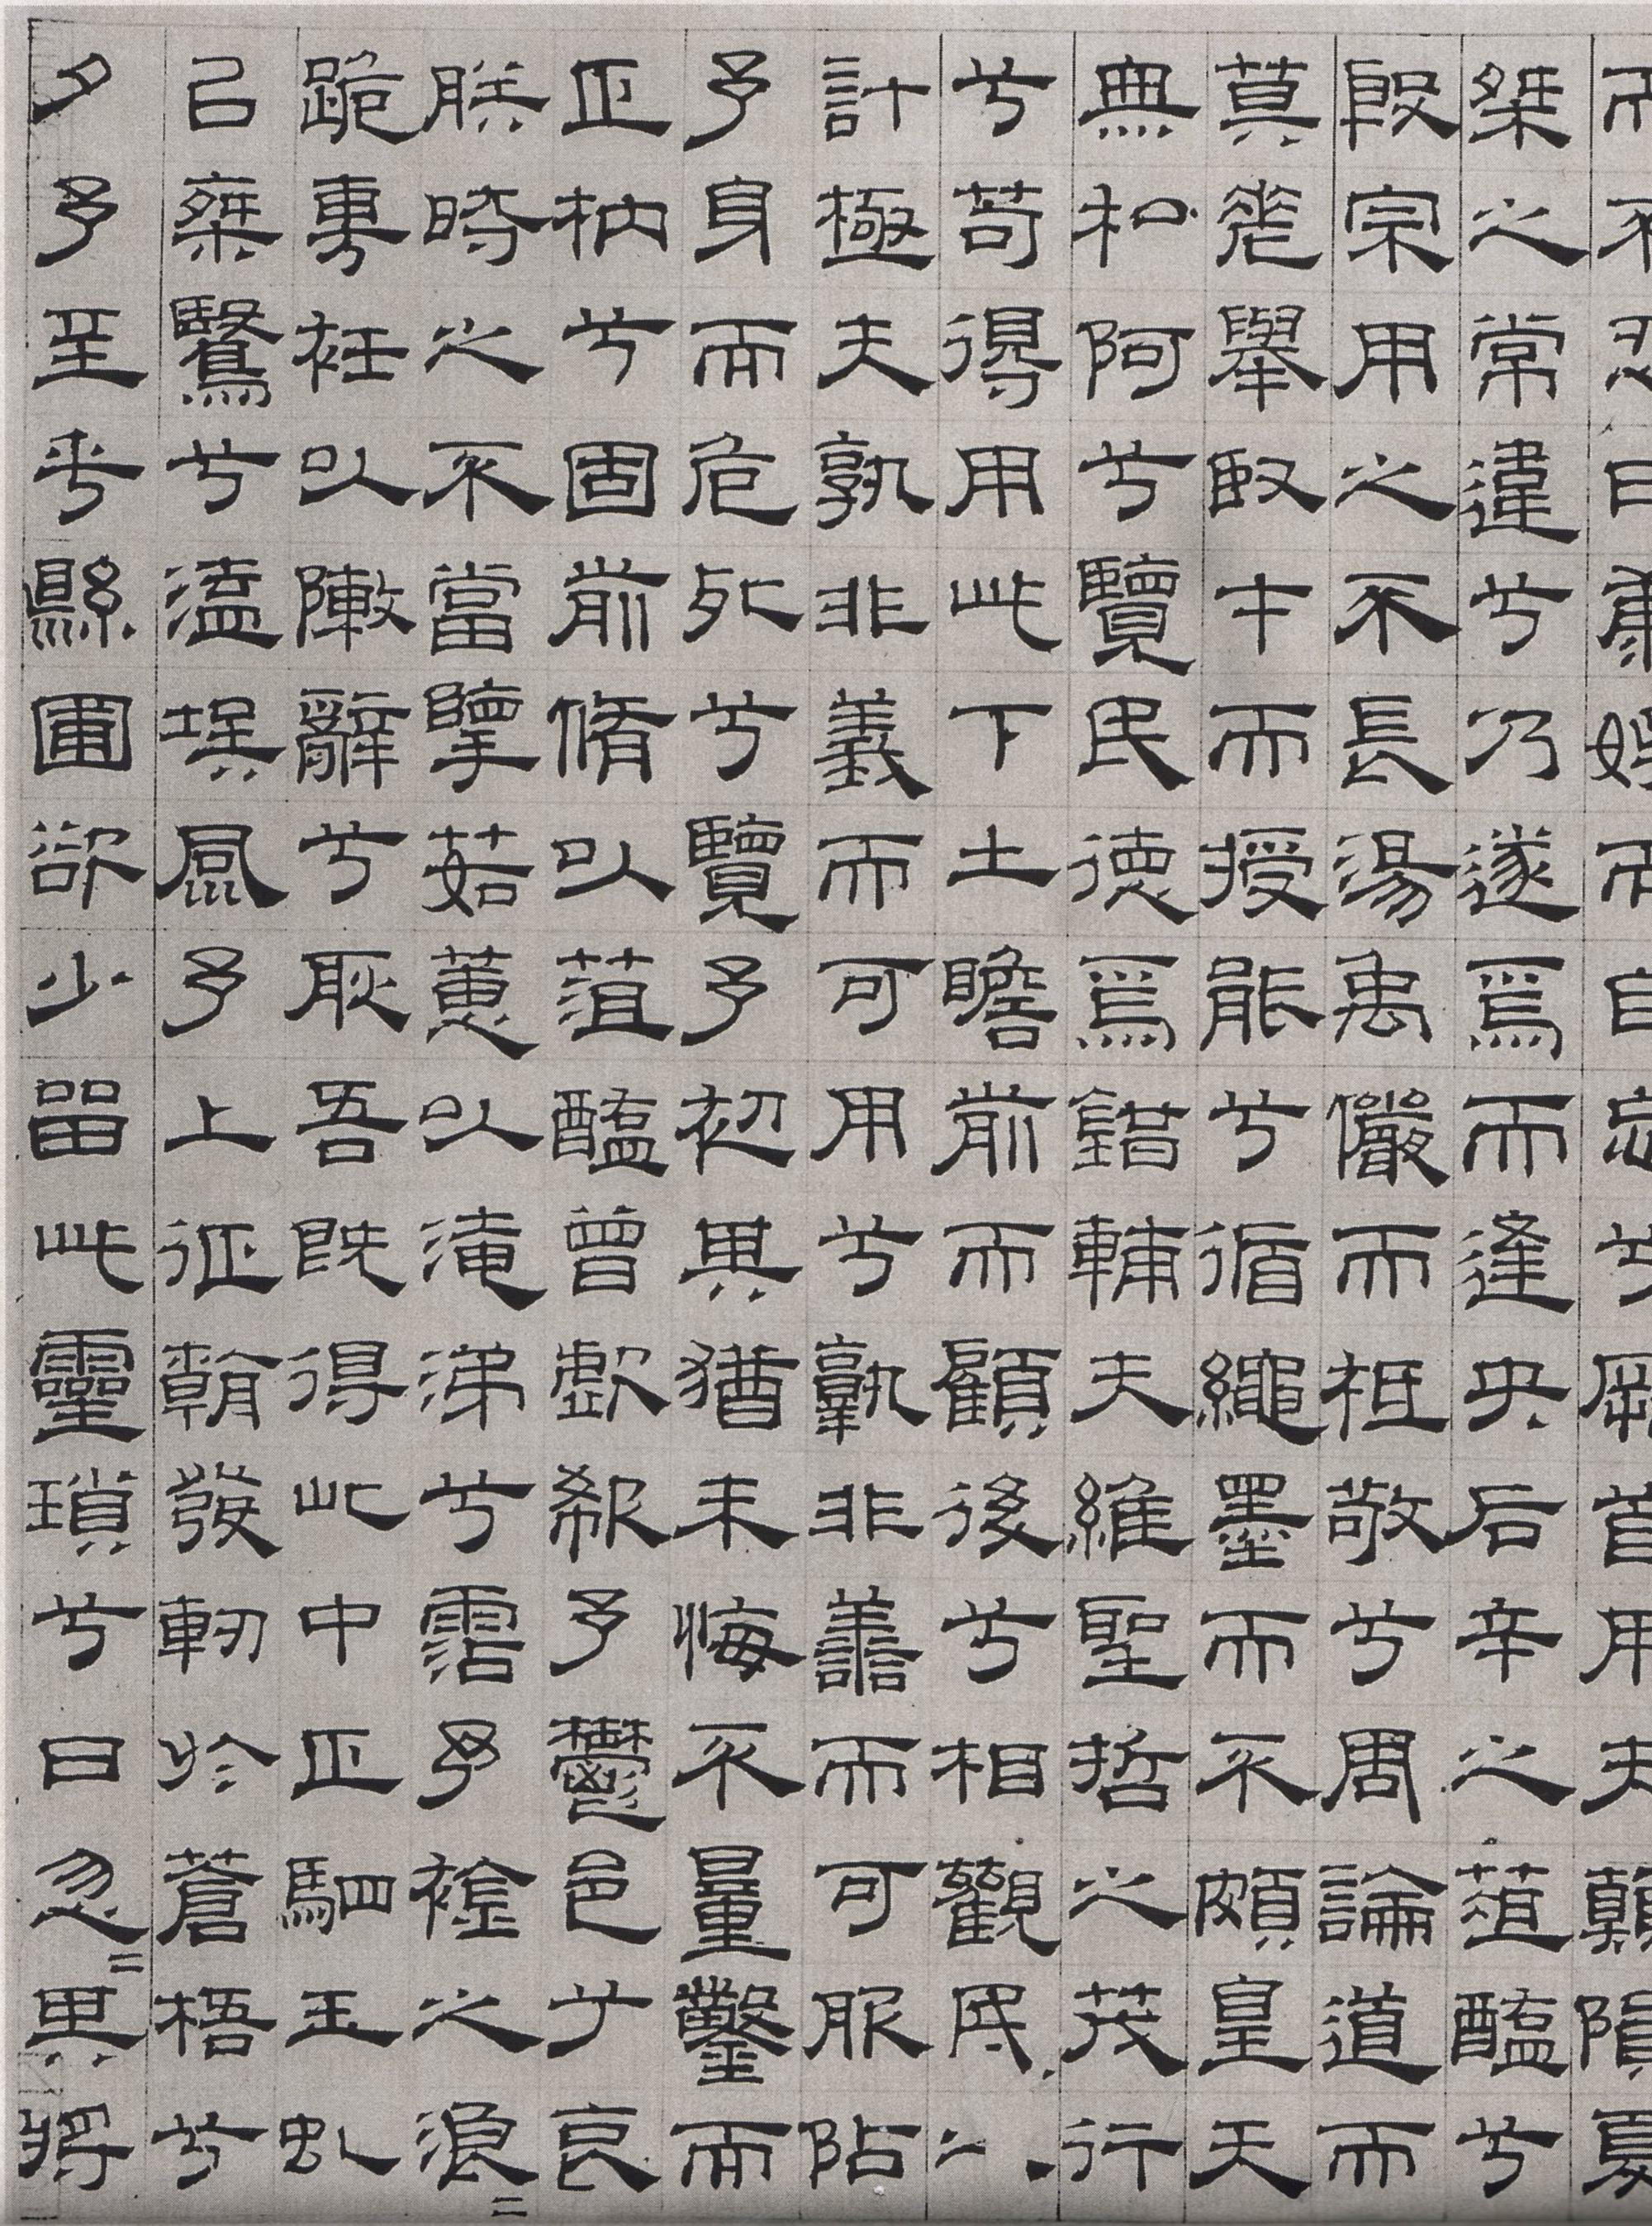 而不忍日康娛而自忘兮厥首用夫顛隕夏
桀之常違兮乃遂焉而逢央后辛之菹醢兮
殷宗用之不長湯禹儼而祗敬兮周論道而
莫差舉臤才而授能兮循繩墨而不頗皇天
無私阿兮覽民德焉錯輔夫維聖哲之茂行
兮苟得用此下土瞻前而顧後兮相觀民之
計極夫孰非義而可用兮孰非譱而可服阽
予身而危死兮覽予初其猶未悔不量鑿而
正枘兮固前脩以菹醢曾歔欷予鬱邑兮哀
朕時之不當擥茹蕙以淹涕兮霑予襟之浪=
跪尃衽以陳辭兮耿吾既得此中正駟玉虬
以椉鷖兮溘埃風予上征朝發軔於蒼梧兮
夕予至乎縣圃欲少留此靈瑣兮日忽=其將